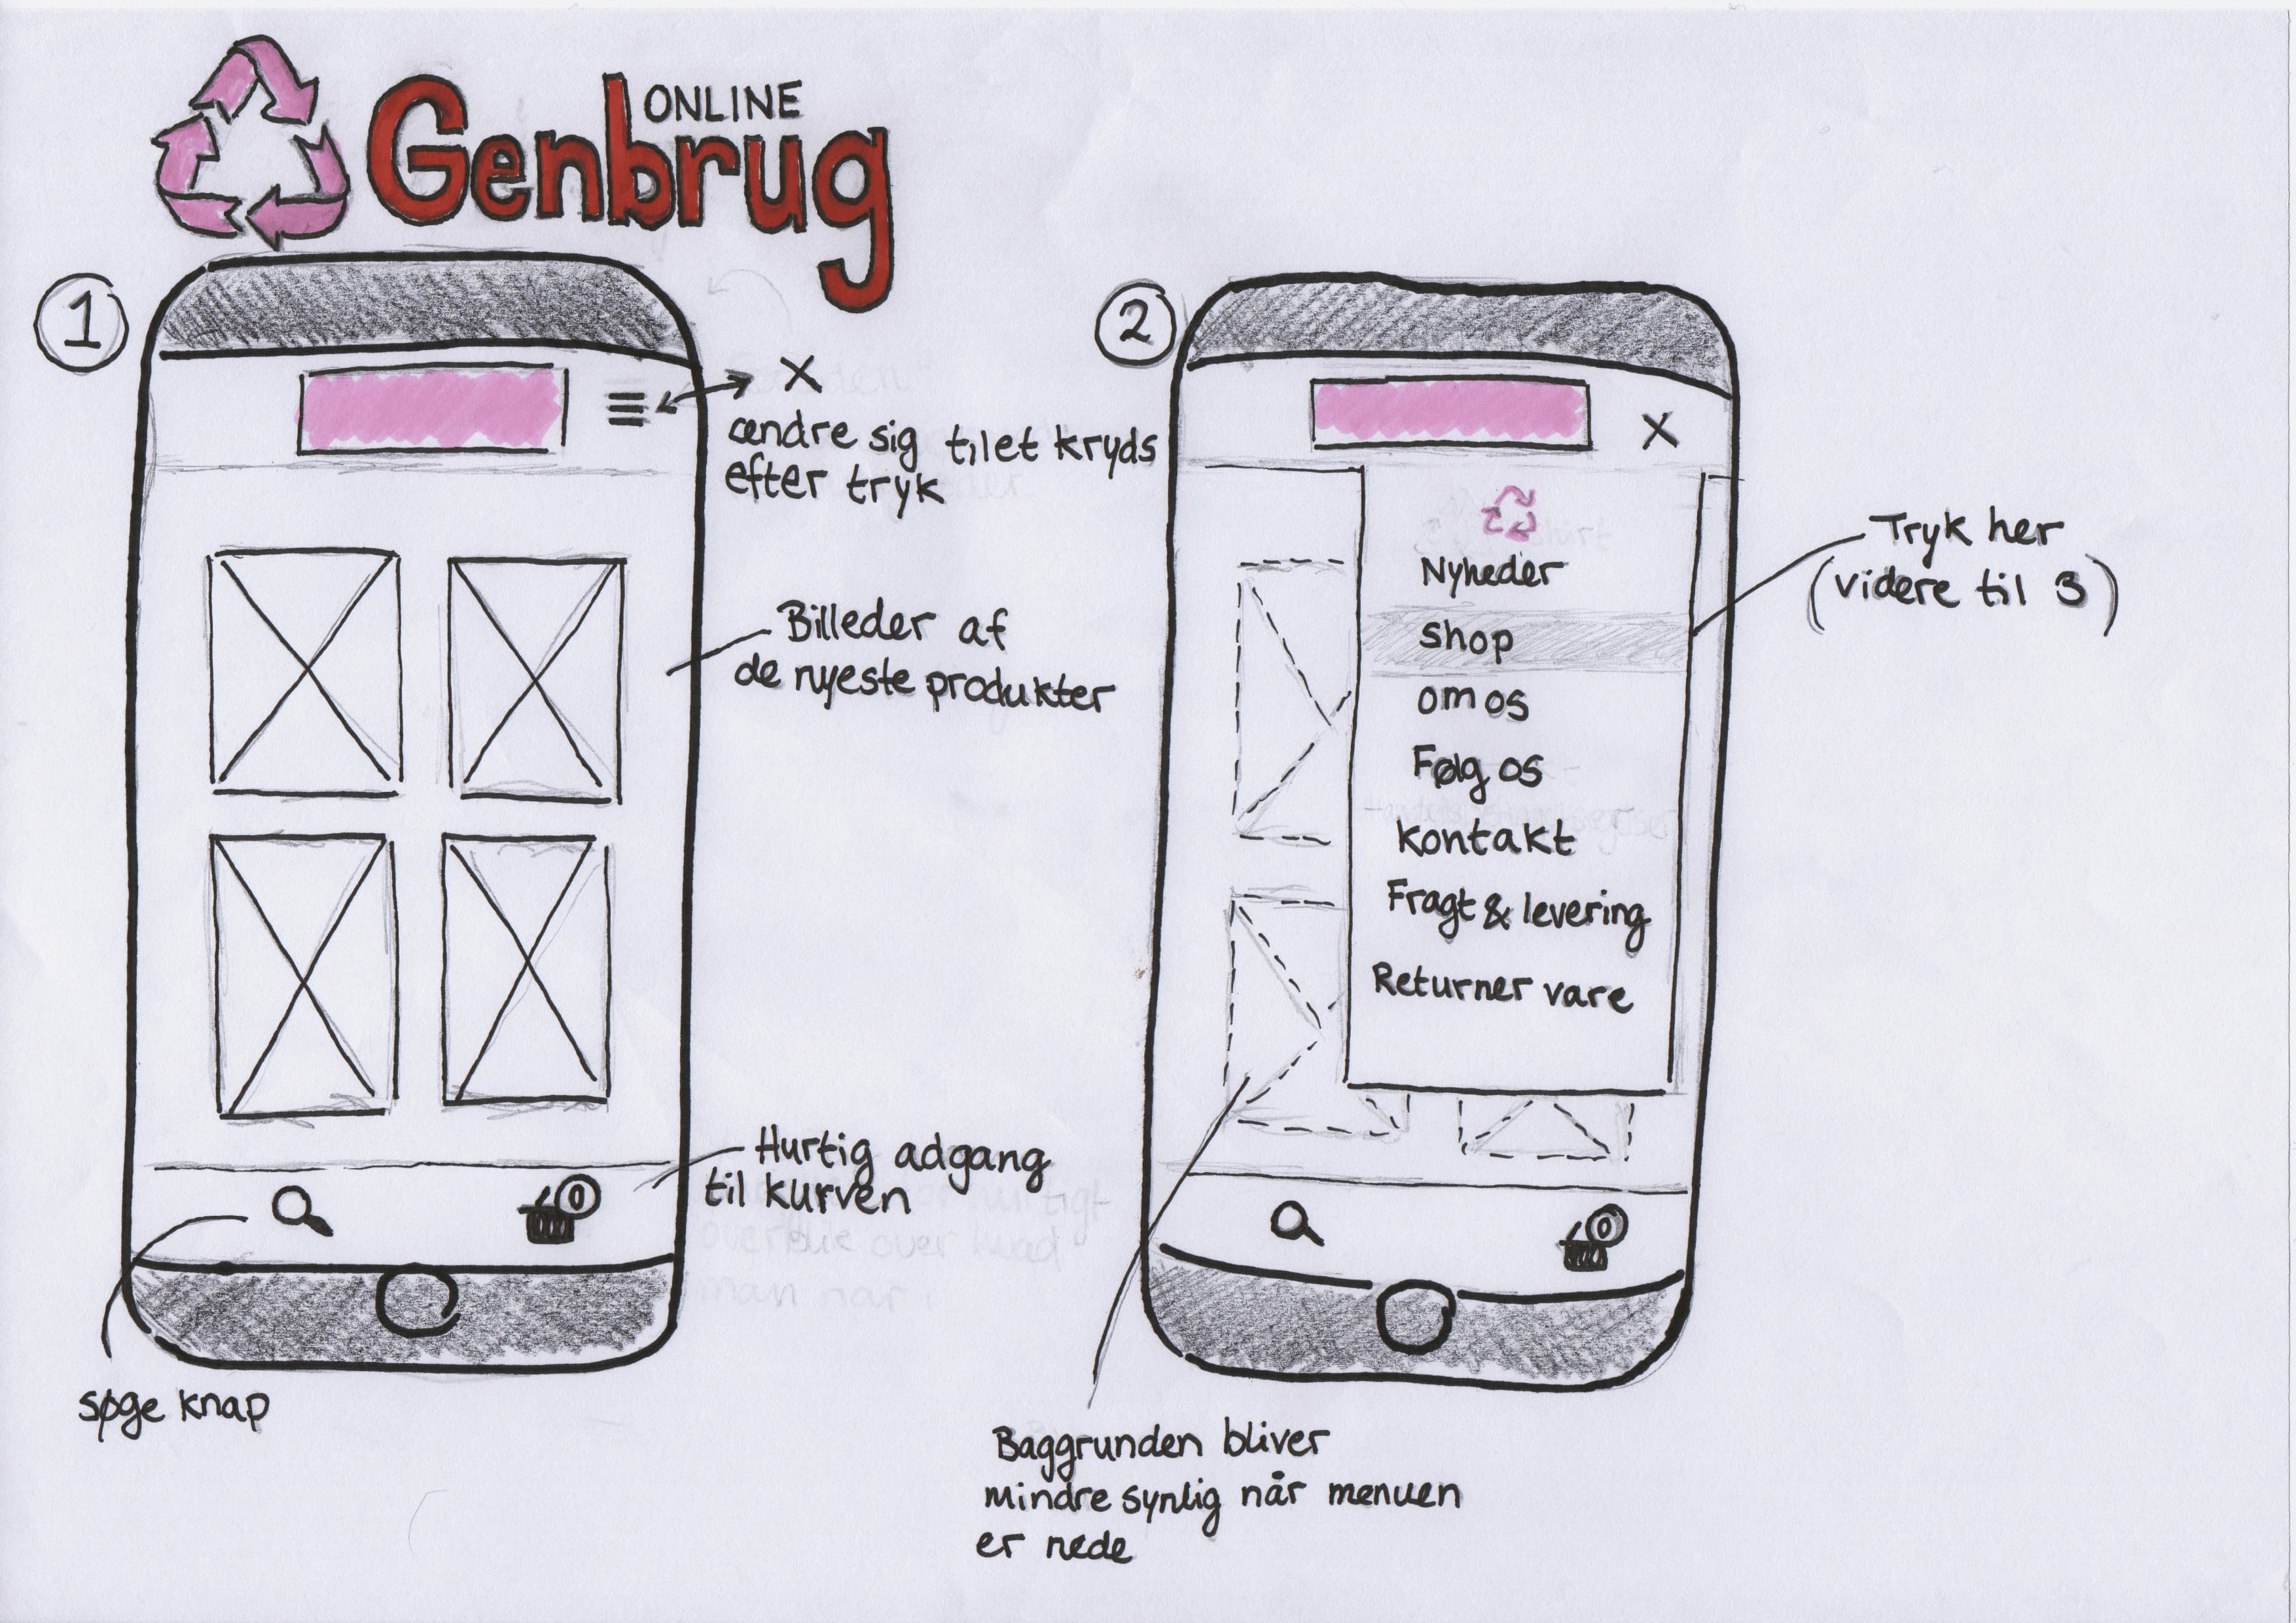 ONLINE
Genbrug
1
X
ændre sig til et kryds
efter tryk
Billeder af
de nyeste produkter
Hurtig adgang
til kurven
0
søge knap
2
X
Nyheder
Shop
om os
Følg os
kontakt
Fragt & levering
Returner vare
Tryk her
(videre til 3)
0
Baggrunden bliver
mindre synlig når menuen
er nede
overblik over hvad
man har